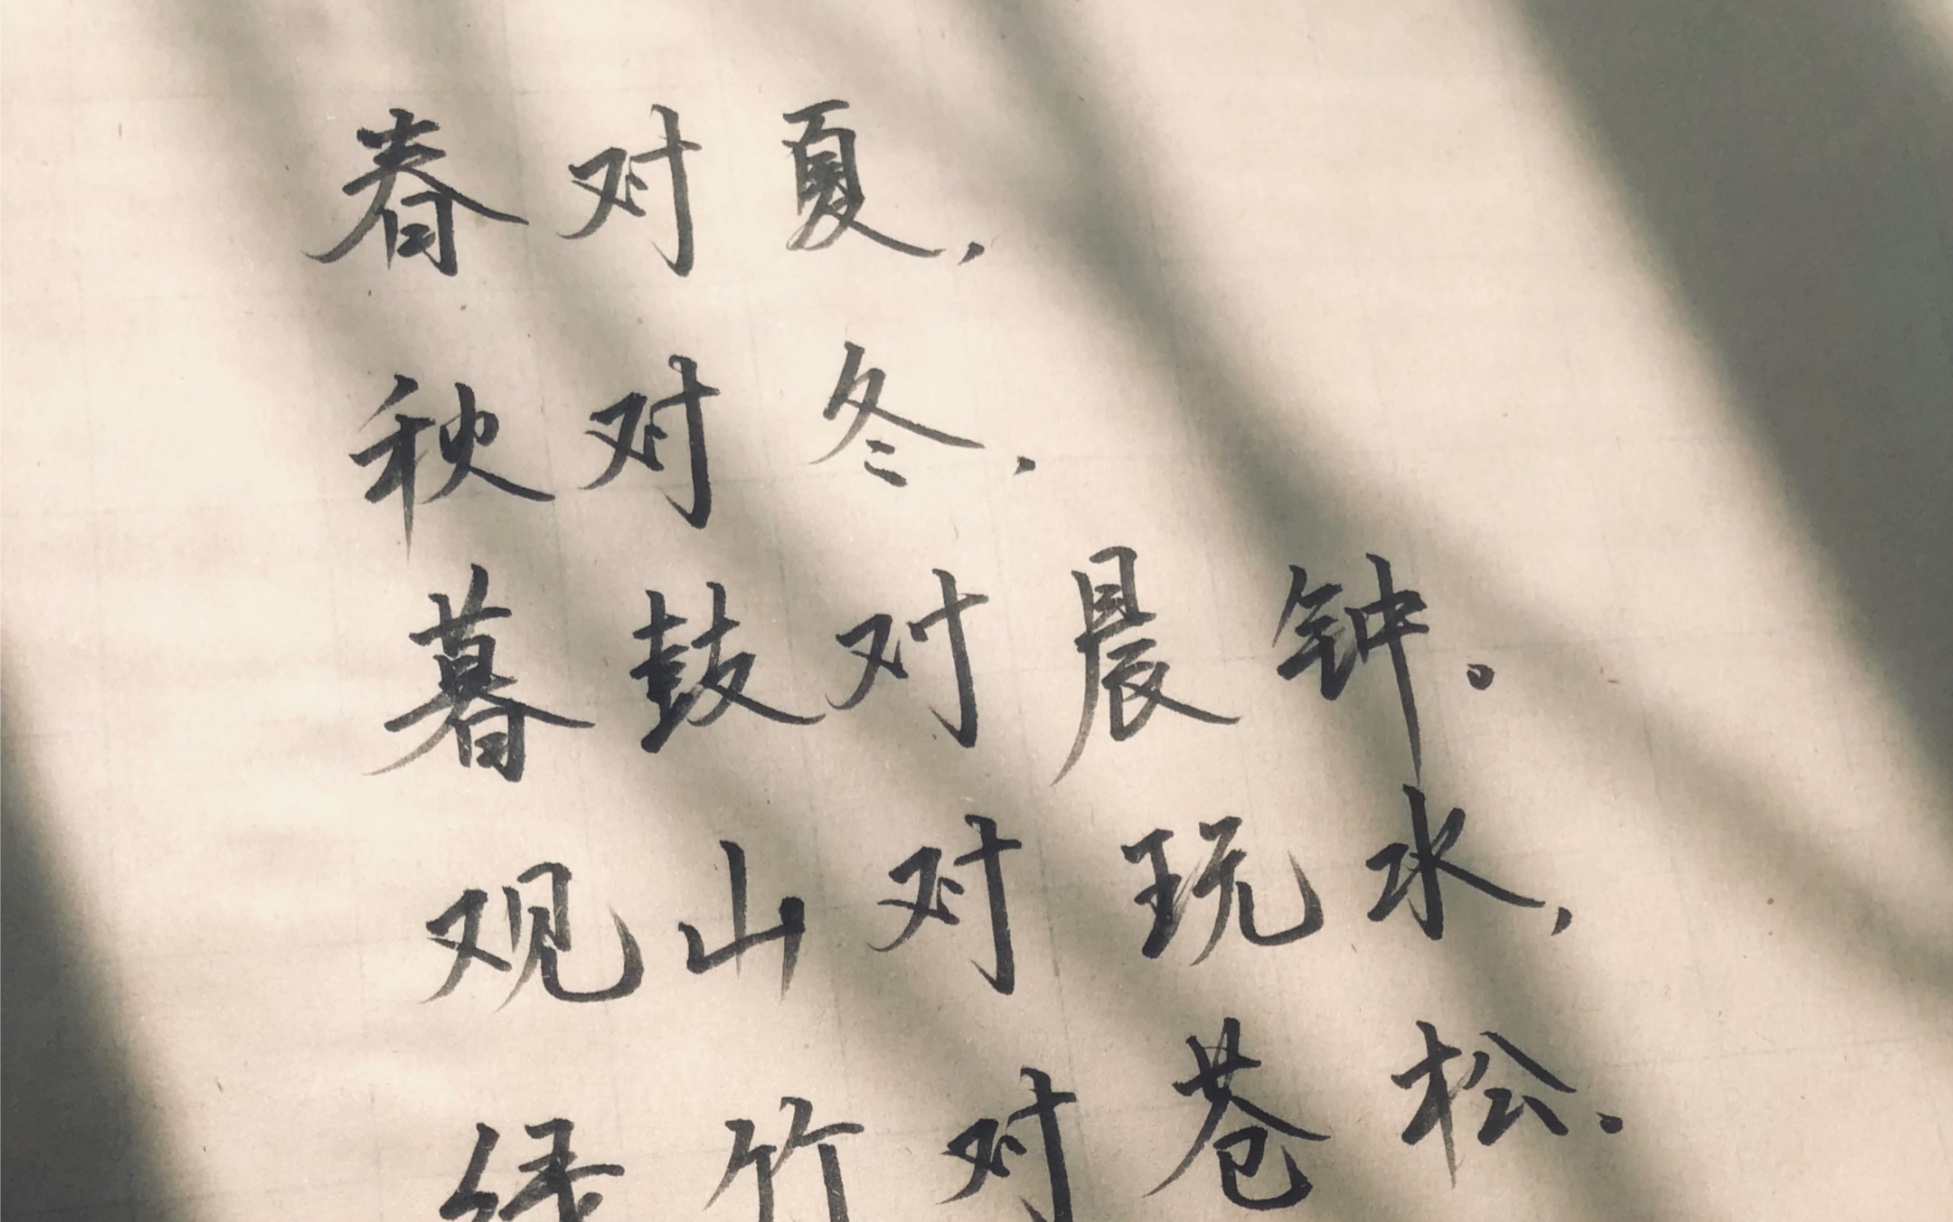 春对夏,
秋对冬,
暮鼓对晨钟。
观山对玩水,
绿竹对苍松.